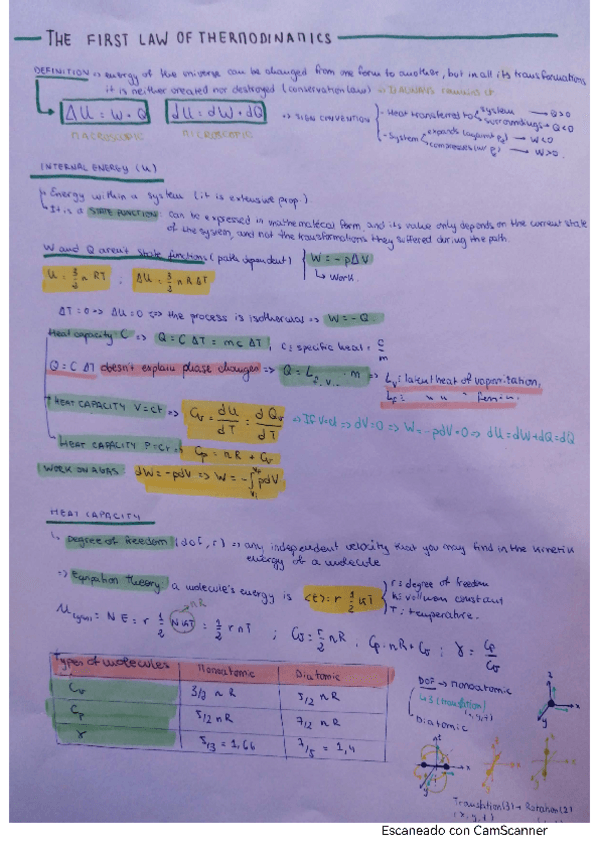 THE FIRST LAW OF THERMODINAMICS
DEFINITION → energy of the universe can be changed from one form to another, but in all its transformations
it is neither created nor destroyed (conservation law)
ΔU = W + Q
dU = dW + dQ
→ SIGN CONVENTION
- Heat transferred to
system → Q>0
surroundings → Q<0
MACROSCOPIC
MICROSCOPIC
- System
expands → W<0
compresses → W>0.
INTERNAL ENERGY (U)
Energy within a system (it is extensive prop.)
It is a STATE FUNCTION: can be expressed in mathematical form, and its value only depends on the current state
of the system, and not the transformations they suffered during the path.
W and Q aren't state functions (path dependent)
W = -pΔV
↳ Work.
U = 3/2 nRT ; ΔU = 3/2 nRΔT
ΔT = 0 => ΔU = 0 => the process is isothermal => W = -Q.
Heat capacity C => Q = CΔT = mcΔT, c = specific heat = C/m
Q = CΔT doesn't explain phase changes => Q = L · m => Lv: latent heat of vaporitation,
HEAT CAPACITY V=ct => Cv = dU/dT = dQv/dT
=> dV=0 => W = -pdV = 0 => dU = dW + dQ = dQ
HEAT CAPACITY P=ct => Cp = nR + Cv
WORK ON A GAS: dW = -pdV => W = -∫pdV
HEAT CAPACITY
Degree of freedom (doF, r) => any independent velocity that you may find in the kinetic
energy of a molecule
=> Equipation theory a molecule's energy is <E> = r 1/2 kT
r = degree of freedom
T: temperature.
nR
= N E = r 1/2 NkT = 1/2 r nT ; Cv = r/2 nR, Cp = nR + Cv ; γ = Cp/Cv
Types of molecules Monoatomic Diatomic
Cv 3/2 nR 5/2 nR
Cp 5/2 nR 7/2 nR
γ 5/3 = 1,66 7/5 = 1,4
DOF → Monoatomic
↳ 3 (translation)
Diatomic
x
y
Translation(3) + Rotation(2)
Escaneado con CamScanner